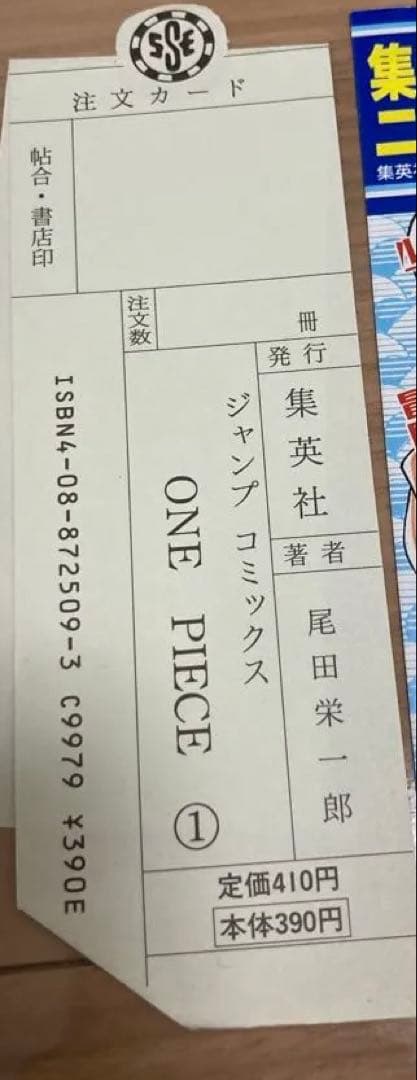 注文カード
帖合・書店印
注文数
冊
発行
集英社
著者
尾田栄一郎
ジャンプ コミックス
ONE PIECE ①
ISBN4-08-872509-3 C9979 ¥390E
定価410円
本体390円
集
集英